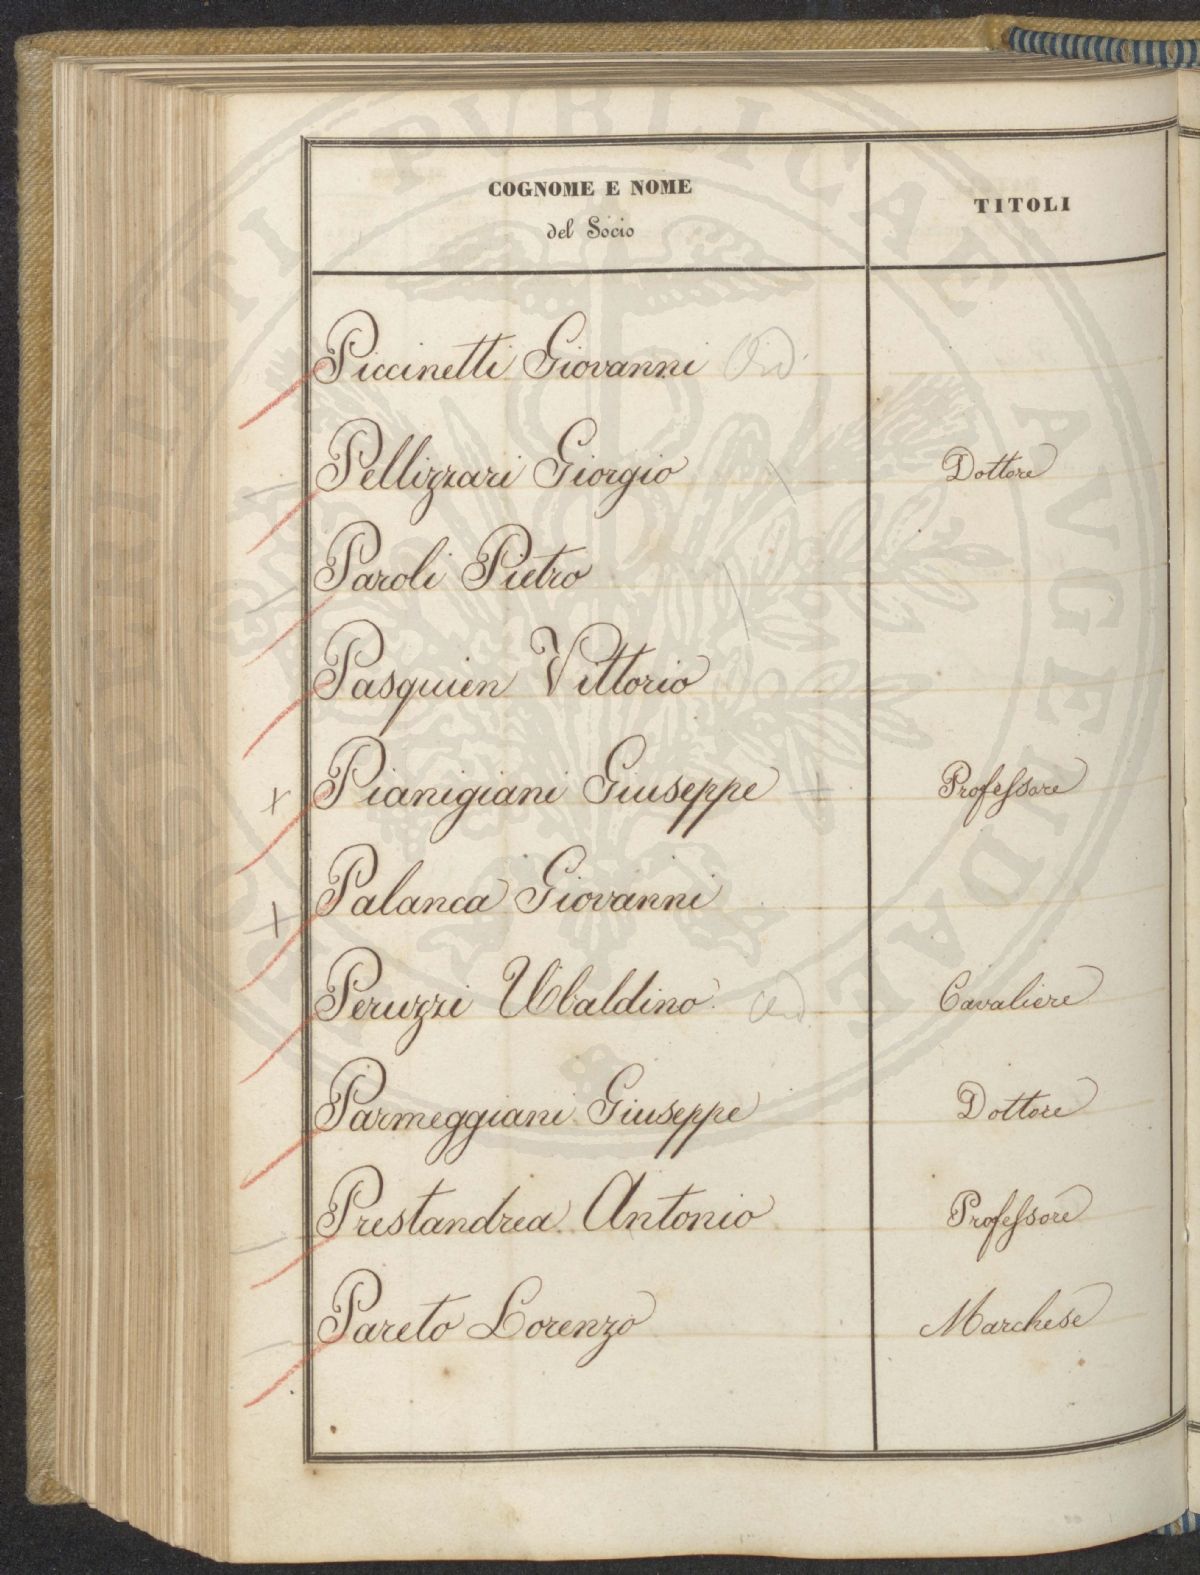 COGNOME E NOME
del Socio
TITOLI
Piccinetti Giovanni Ord.
Pellizzari Giorgio Dottore
Paroli Pietro
Pasquien Vittorio
Pianigiani Giuseppe Professore
Palanca Giovanni
Peruzzi Ubaldino Ord. Cavaliere
Parmeggiani Giuseppe Dottore
Prestandrea Antonio Professore
Pareto Lorenzo Marchese